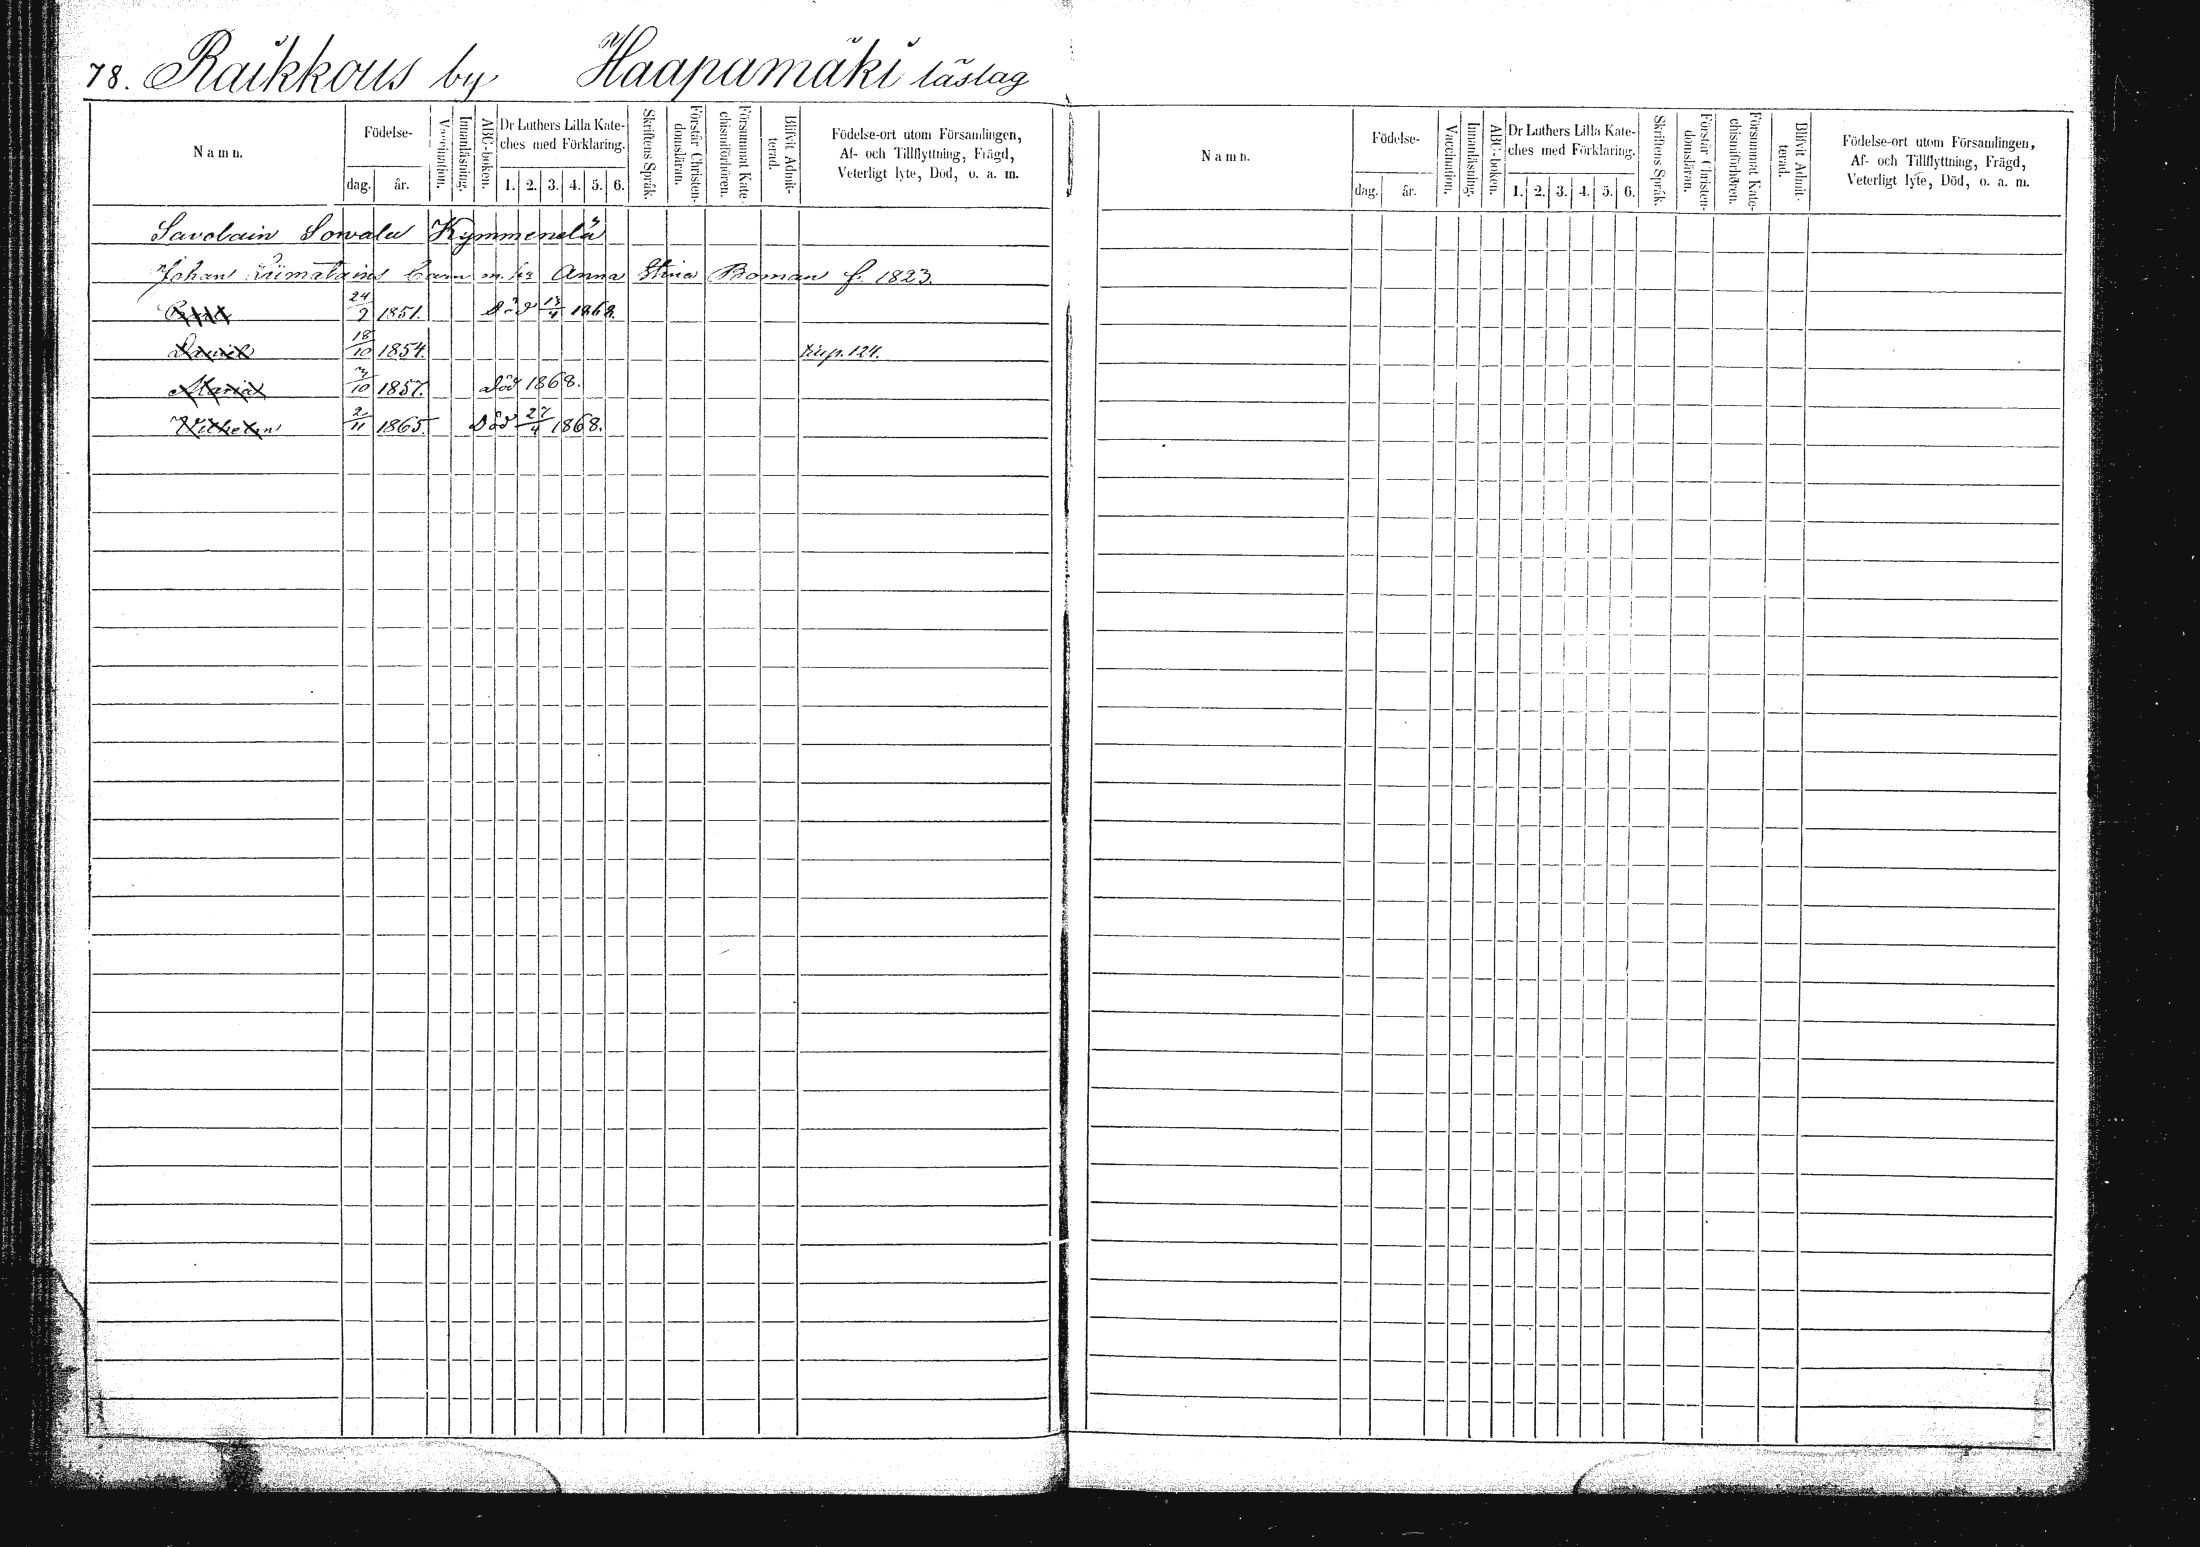 78. Raikkous by Haapamäki läslag
Namn.
Födelse-
dag. år.
Vaccination.
Innanläsning.
ABC-boken.
Dr Luthers Lilla Kate-
ches med Förklaring.
1. 2. 3. 4. 5. 6.
Skriftens Språk.
Förstår Christen-
domsläran.
Försummat Kate-
chismiförhören.
Blifvit Admit-
terad.
Födelse-ort utom Församlingen,
Af- och Tillflyttning, Frägd,
Veterligt lyte, Död, o. a. m.
Savolain Kymmenelä
Johan Liimatains barn m. Anna Stina Boman f. 1823.
24/2 1851. Död 13/4 1868.
Daniel 18/10 1854. 124.
Maria 7/10 1857. död 1868.
Wilhelm 2/11 1865. Död 27/4 1868.
Namn.
Födelse-
dag. år.
Vaccination.
Innanläsning.
ABC-boken.
Dr Luthers Lilla Kate-
ches med Förklaring.
1. 2. 3. 4. 5. 6.
Skriftens Språk.
Förstår Christen-
domsläran.
Försummat Kate-
chismiförhören.
Blifvit Admit-
terad.
Födelse-ort utom Församlingen,
Af- och Tillflyttning, Frägd,
Veterligt lyte, Död, o. a. m.